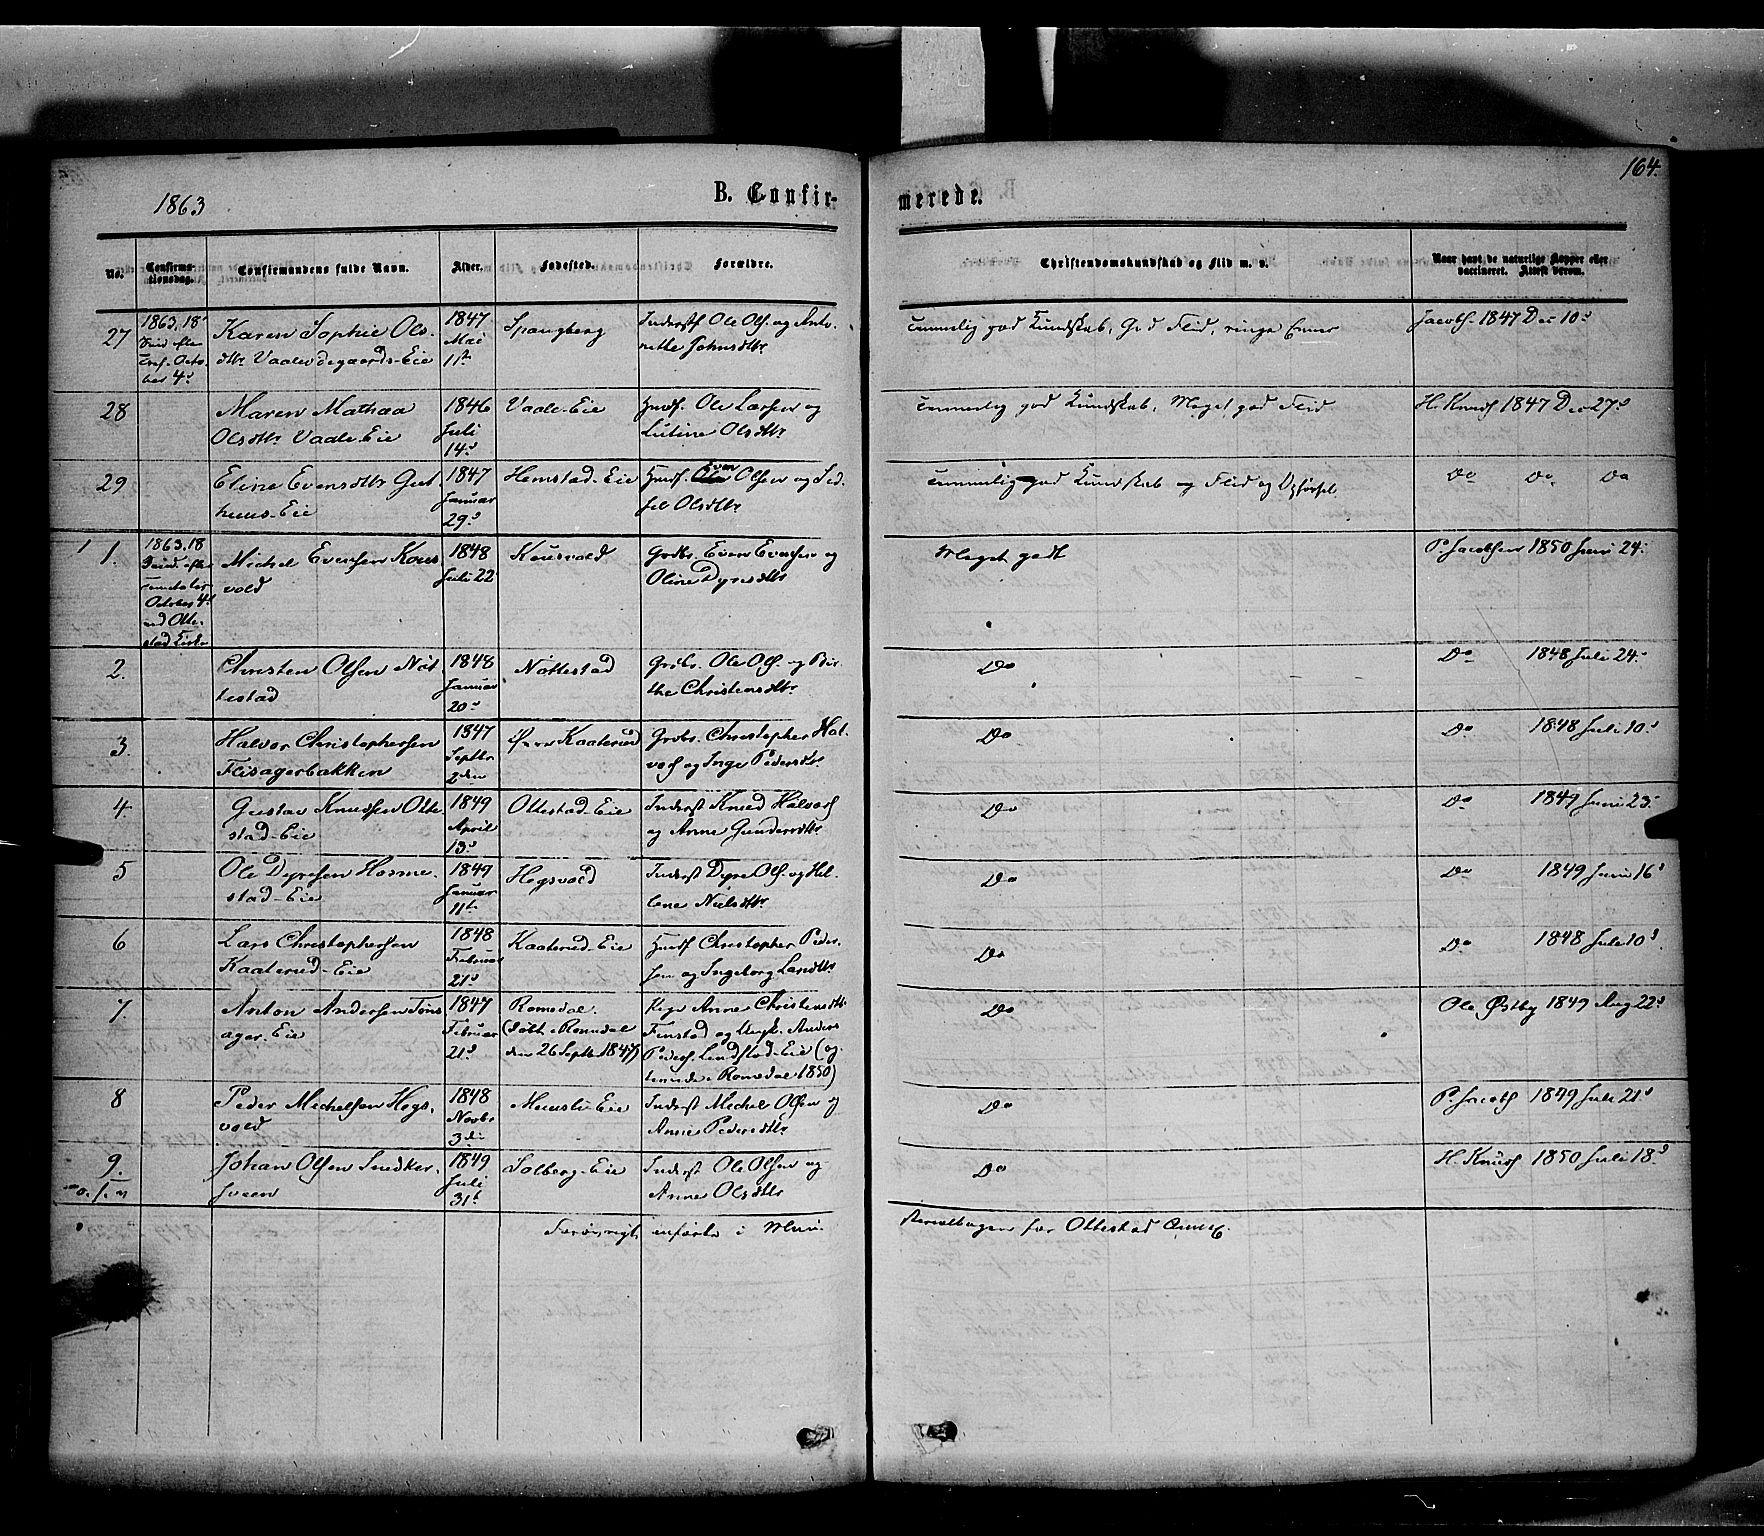 164.
1863
B. Confir-
merede.
No.
Confirma-
tionsdag.
Confirmandens fulde Navn.
Alder.
Fødested.
Forældre.
Christendomskundskab og Flid m. v.
Naar havt de naturlige Kopper eller
vaccineret. Attest derom.
27
1863, 18
Octo-
ber 4d
Karen Sophie Ols-
dtr. Vaalerdegaards-Eie
1847
Mai
11te
Spangberg
Inderst Ole Ols. og Anto-
nette Johnsdtr
Temmelig god Kundskab, God Flid, ringe Evner
Jacobs. 1847 Dec 10d
28
Maren Mathea
Olsdtr. Vaale-Eie
1846
Juli
14d
Vaale-Eie
Huusf. Ole Larsen og
Lutine Olsdtr.
Temmelig god Kundskab, Meget god Flid
H. Knuds 1847 Dec 27d
29
Eline Evensdtr Gut-
huus-Eie
1847
Januar
29d
Hemstad-Eie
Even
Huusf. Ole Olsen og
Olsdtr.
Temmelig god Kundskab og Flid og Opførsel
Do Do Do
1 1.
1863, 18
October 4d
ved Otte-
stad Kirke
Michel Evensen Kous-
vold
1848
Juli 22
Kousvold
Grdbr. Even Evensen og
Oline Dyresdtr
Meget godt
P. Jacobsen 1850 Juni 24.
2.
Christen Olsen Nøt-
testad
1848
Januar
20d
Nøttestad
Grdbr. Ole Ols. og Ber-
the Christensdtr.
Do
Do 1848 Juli 24.
3.
Halvor Christophersen
Flisagerbakken
1847
Septbr
2den
Øvre Kaaterud
Grdbr. Christopher Hal-
vors og Inge Pedersdtr.
Do
Do 1848 Juli 10d
4.
Gustav Knudsen Otte-
stad-Eie
1849
April
13d
Ottestad-Eie
Inderst Knud Halvors
og Anne Gundersdtr.
Do
Do 1849 Juni 23.
5
Ole Dyresen Hosme-
stad-Eie
1849
Januar
11te
Hogsvold
Inderst Dyre Ols. og Hel-
lene Nielsdtr.
Do
Do 1849 Juni 16d
6
Lars Christophersen
Kaaterud-Eie
1848
Februar
21d
Kaaterud-Eie
Huusf Christopher Peder-
sen og Ingeborg Larsdtr.
Do
Do 1848 Juli 10d.
7
Anton Andersen Tøns-
ager-Eie
1847
Februar
21d
Romedal.
(døbt i Romedal
den 26 Septbr 1847)
Pige Anne Christensdtr.
Finstad og Ungk. Anders
Peders. Lundstad-Eie (æg-
teviede i Romedal 1850)
Do
Ole Østby 1849 Aug 22d
8
Peder Michelsen Hogs-
vold
1848
Novbr
3die
Muustu Eie
Inderst Michel Olsen og
Anne Pedersdtr.
Do
P. Jacobs 1849 Juli 21d
9.
Johan Olsen Snedker-
sveen
1849
Juli
31te
Solberg-Eie
Inderst Ole Olsen og
Anne Olsdtr
Do
H. Knuds 1850 Juli 18d
o. s. v.
Forøvrigt indførte i Mini-
sterialbogen for Ottestad Annex.